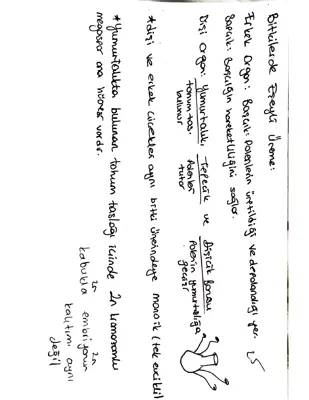 Bitkilerde Eşeyli Üreme:
Erkek Organ: Başcık: Polenlerin üretildiği ve depolandığı yer.
Sapçık: Başçığın hareketliliğini sağlar.
Dişi Organ: Yumurtalık, Tepecik ve Dişicik borusu
tohum tas. bulunur
Polenleri tutar
Polenin yumurtalığa geçişi
*dişi ve erkek çiçekler aynı bitki üzerindeyse monoik (tek evcikli)
*Yumurtalıkta bulunan tohum taslağı içinde 2n kromozomlu
megaspor ana hücresi vardır.
2n 2n
kabukla embriyonun
kalıtımı aynı
değil